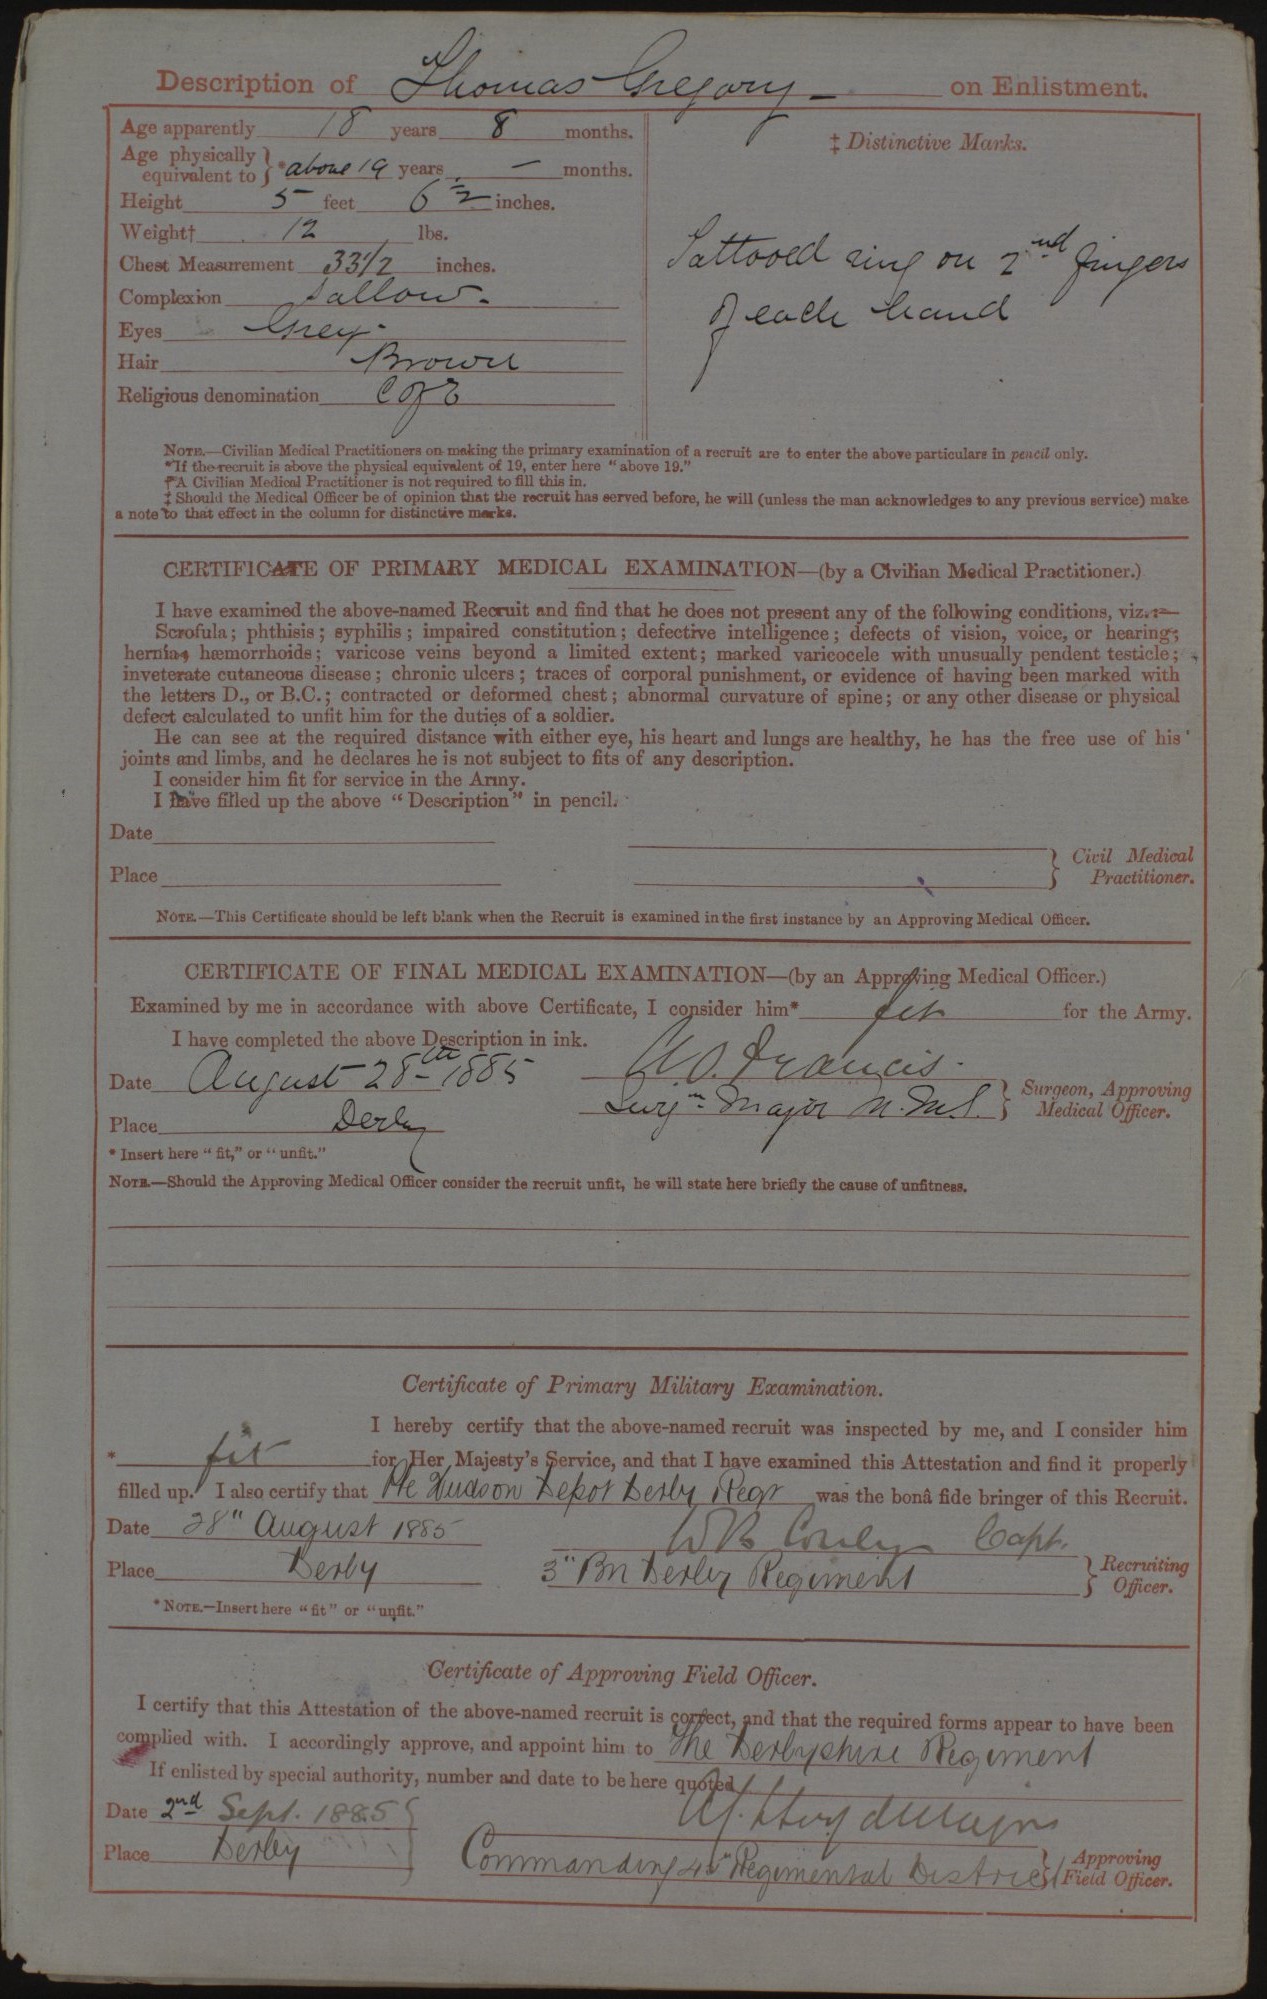 Description of Thomas Gregory on Enlistment.
Age apparently 18 years 8 months.
Age physically equivalent to } *above 19 years — months.
Height 5 feet 6 1/2 inches.
Weight† 12 lbs.
Chest Measurement 33 1/2 inches.
Complexion Sallow.
Eyes Grey.
Hair Brown
Religious denomination C of E
‡ Distinctive Marks.
Tattooed ring on 2nd fingers
of each hand
NOTE.—Civilian Medical Practitioners on making the primary examination of a recruit are to enter the above particulars in pencil only.
*If the recruit is above the physical equivalent of 19, enter here "above 19."
†A Civilian Medical Practitioner is not required to fill this in.
‡ Should the Medical Officer be of opinion that the recruit has served before, he will (unless the man acknowledges to any previous service) make
a note to that effect in the column for distinctive marks.
CERTIFICATE OF PRIMARY MEDICAL EXAMINATION—(by a Civilian Medical Practitioner.)
I have examined the above-named Recruit and find that he does not present any of the following conditions, viz.:—
Scrofula; phthisis; syphilis; impaired constitution; defective intelligence; defects of vision, voice, or hearing;
hernia; hæmorrhoids; varicose veins beyond a limited extent; marked varicocele with unusually pendent testicle;
inveterate cutaneous disease; chronic ulcers; traces of corporal punishment, or evidence of having been marked with
the letters D., or B.C.; contracted or deformed chest; abnormal curvature of spine; or any other disease or physical
defect calculated to unfit him for the duties of a soldier.
He can see at the required distance with either eye, his heart and lungs are healthy, he has the free use of his
joints and limbs, and he declares he is not subject to fits of any description.
I consider him fit for service in the Army.
I have filled up the above "Description" in pencil.
Date
Place
} Civil Medical
Practitioner.
NOTE.—This Certificate should be left blank when the Recruit is examined in the first instance by an Approving Medical Officer.
CERTIFICATE OF FINAL MEDICAL EXAMINATION—(by an Approving Medical Officer.)
Examined by me in accordance with above Certificate, I consider him* fit for the Army.
I have completed the above Description in ink.
Date August 28th 1885 Francis.
Surgn Major } Surgeon, Approving
Medical Officer.
Place Derby
* Insert here "fit," or "unfit."
NOTE.—Should the Approving Medical Officer consider the recruit unfit, he will state here briefly the cause of unfitness.
Certificate of Primary Military Examination.
I hereby certify that the above-named recruit was inspected by me, and I consider him
* fit for Her Majesty's Service, and that I have examined this Attestation and find it properly
filled up. I also certify that Pte Hudson Depot Derby Regt was the bonâ fide bringer of this Recruit.
Date 28" August 1885 Capt.
Place Derby 3" Bn Derby Regiment } Recruiting
Officer.
*NOTE.—Insert here "fit" or "unfit."
Certificate of Approving Field Officer.
I certify that this Attestation of the above-named recruit is correct, and that the required forms appear to have been
complied with. I accordingly approve, and appoint him to The Derbyshire Regiment
If enlisted by special authority, number and date to be here quoted
Date 2nd Sept. 1885
Place Derby Commanding 45" Regimental District } Approving
Field Officer.